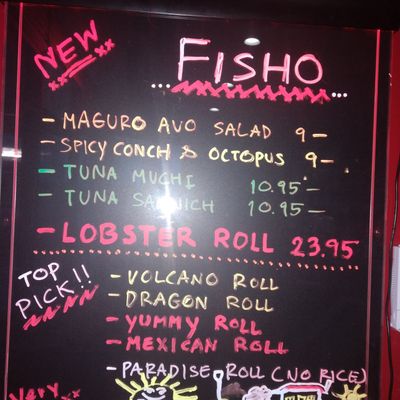 NEW
FISHO
- MAGURO AVO SALAD 9-
- SPICY CONCH & OCTOPUS 9-
- TUNA MUCHI 10.95-
- TUNA SANDWICH 10.95-
- LOBSTER ROLL 23.95
TOP PICK!!
- VOLCANO ROLL
- DRAGON ROLL
- YUMMY ROLL
- MEXICAN ROLL
- PARADISE ROLL (NO RICE)
Very